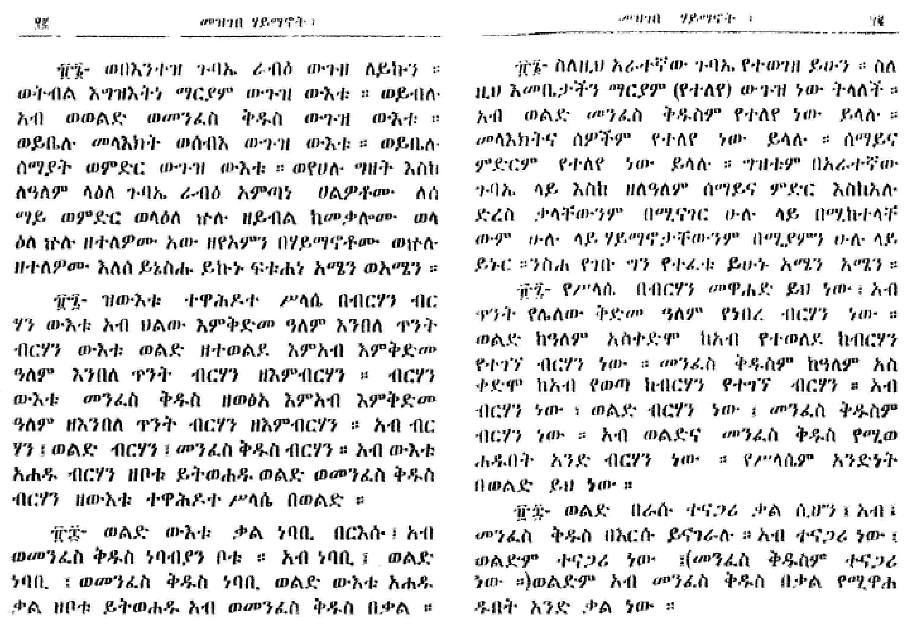 ፶፪
መዝገበ ሃይማኖት ፤
፸፮- ወበእንተዝ ጉባኤ ራብዕ ውጉዘ ለይኩን ።
ወትብል እግዝእትነ ማርያም ውጉዝ ውእቱ ። ወይብሉ
አብ ወወልድ ወመንፈስ ቅዱስ ውጉዝ ውእቱ ።
ወይቤሉ መላእክት ወሰብእ ውጉዝ ውእቱ ። ወይቤሉ
ሰማያት ወምድር ውጉዝ ውእቱ ። ወየሀሉ ግዘት እስከ
ለዓለም ላዕለ ጉባኤ ራብዕ አምጣነ ሀልዎቶሙ ለሰ
ማይ ወምድር ወላዕለ ኵሉ ዘይብል ከመቃሎሙ ወላ
ዕለ ኵሉ ዘተለዎሙ አው ዘየአምን በሃይማኖቶሙ ወኵሉ
ዘተለዎሙ እለሰ ይኔስሑ ይኩኑ ፍቱሐነ አሜን ወአሜን ።
፸፯- ዝውእቱ ተዋሕዶተ ሥላሴ በብርሃን ብር
ሃን ውእቱ አብ ህልው እምቅድመ ዓለም እንበለ ጥንት
ብርሃን ውእቱ ወልድ ዘተወልደ እምአብ እምቅድመ
ዓለም እንበለ ጥንት ብርሃን ዘእምብርሃን ። ብርሃን
ውእቱ መንፈስ ቅዱስ ዘወፅአ እምአብ እምቅድመ
ዓለም ዘእንበለ ጥንት ብርሃን ዘእምብርሃን ። አብ ብር
ሃን ፤ ወልድ ብርሃን ፤ መንፈስ ቅዱስ ብርሃን ። አብ ውእቱ
አሐዱ ብርሃን ዘቦቱ ይትወሐዱ ወልድ ወመንፈስ ቅዱስ
ብርሃን ዘውእቱ ተዋሕዶተ ሥላሴ በወልድ ።
፸፰- ወልድ ውእቱ ቃል ነባቢ በርእሱ ፤ አብ
ወመንፈስ ቅዱስ ነባብያን ቦቱ ። አብ ነባቢ ፤ ወልድ
ነባቢ ፤ ወመንፈስ ቅዱስ ነባቢ ወልድ ውእቱ አሐዱ
ቃል ዘቦቱ ይትወሐዱ አብ ወመንፈስ ቅዱስ በቃል ።
መዝገበ ሃይማኖት ፤
፸፮- ስለዚህ አራተኛው ጉባኤ የተወገዘ ይሁን ። ስለ
ዚህ እመቤታችን ማርያም (የተለየ) ውጉዝ ነው ትላለች ።
አብ ወልድ መንፈስ ቅዱስም የተለየ ነው ይላሉ ።
መላእክትና ሰዎችም የተለየ ነው ይላሉ ። ሰማይና
ምድርም የተለየ ነው ይላሉ ። ግዝቱም በአራተኛው
ጉባኤ ላይ እስከ ዘለዓለም ሰማይና ምድር እስከአሉ
ድረስ ቃላቸውንም በሚናገር ሁሉ ላይ በሚከተላቸ
ውም ሁሉ ላይ ሃይማኖታቸውንም በሚያምን ሁሉ ላይ
ይኑር ።ንስሐ የገቡ ግን የተፈቱ ይሁኑ አሜን አሜን ።
፸፯- የሥላሴ በብርሃን መዋሐድ ይህ ነው ፤ አብ
ጥንት የሌለው ቅድመ ዓለም የነበረ ብርሃን ነው ።
ወልድ ከዓለም አስቀድሞ ከአብ የተወለደ ከብርሃን
የተገኘ ብርሃን ነው ። መንፈስ ቅዱስም ከዓለም አስ
ቀድሞ ከአብ የወጣ ከብርሃን የተገኘ ብርሃን ። አብ
ብርሃን ነው ፤ ወልድ ብርሃን ነው ፤ መንፈስ ቅዱስም
ብርሃን ነው ። አብ ወልድና መንፈስ ቅዱስ የሚወ
ሐዱበት አንድ ብርሃን ነው ። የሥላሴም አንድነት
በወልድ ይህ ነው ።
፸፰- ወልድ በራሱ ተናጋሪ ቃል ሲሆን ፤ አብ ፤
መንፈስ ቅዱስ በእርሱ ይናገራሉ ። አብ ተናጋሪ ነው ፤
ወልድም ተናጋሪ ነው ፤(መንፈስ ቅዱስም ተናጋሪ
ነው ።)ወልድም አብ መንፈስ ቅዱስ በቃል የሚዋሐ
ዱበት አንድ ቃል ነው ።